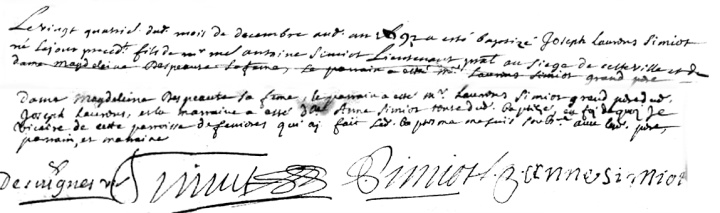 Le vingt quatrie dud. mois de decembre aud. an 1692 a esté baptizé Joseph Laurens Simiot
né le jour preced. fils de mr me Antoine Simiot Lieutenant ptal au siege de cette ville et de
dame Magdeleine Despeaute sa feme, Le parrain a esté Mr Laurens Simiot grand pere
Dame Magdeleine Despeaute sa feme, le parrain a esté Mr Laurens Simiot grand pere dud.
Joseph Laurens, et la marraine a esté Anne Simiot dud. baptizé, en foj dequoj Je
vicaire de cette parroisse qui aj fait led. baptesme me suis avec led. pere,
parrain, et marraine
Simiot Simiot anne simiot